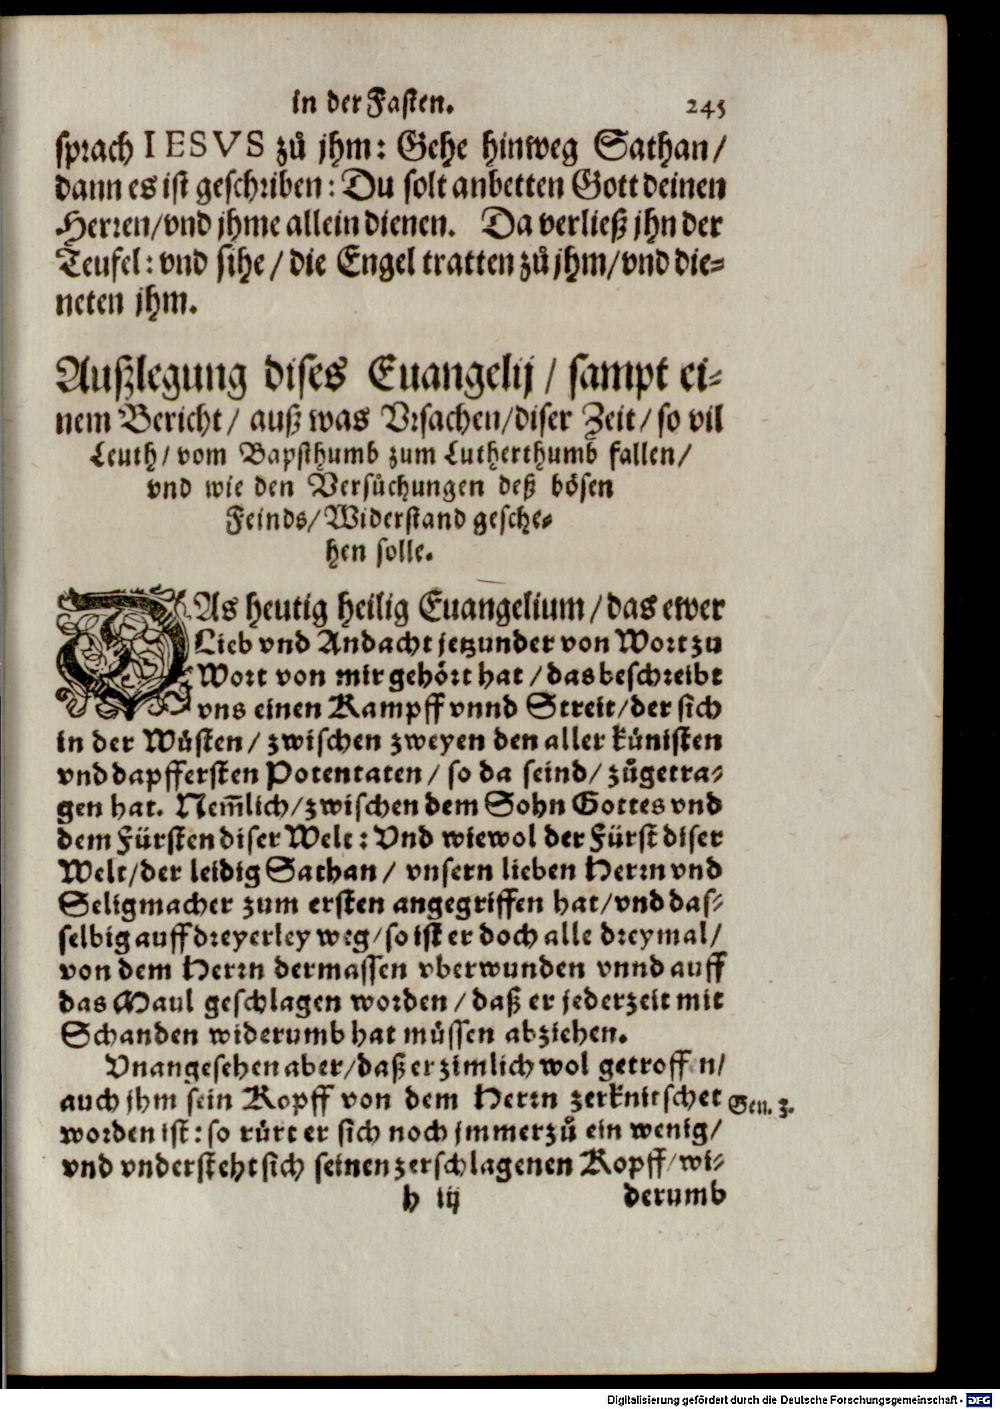 in der Fasten. 245
sprach IESVS zů jhm: Gehe hinweg Sathan/
dann es ist geschriben: Du solt anbetten Gott deinen
Herren/vnd jhme allein dienen. Da verließ jhn der
Teufel: vnd sihe/ die Engel tratten zů jhm/vnd die=
neten jhm.
Außlegung dises Euangelij/ sampt ei=
nem Bericht/ auß was Vrsachen/diser Zeit/ so vil
Leuth/ vom Bapsthumb zum Lutherthumb fallen/
vnd wie den Versůchungen deß bösen
Feinds/Widerstand gesche=
hen solle.
DAs heutig heilig Euangelium/das ewer
Lieb vnd Andacht jetzunder von Wort zu
Wort von mir gehört hat/das beschreibt
vns einen Kampff vnnd Streit/der sich
in der Wüsten/ zwischen zweyen den aller künisten
vnd dapffersten Potentaten/ so da seind/ zůgetra=
gen hat. Nem̄lich/zwischen dem Sohn Gottes vnd
dem Fürsten diser Welt: Vnd wiewol der Fürst diser
Welt/der leidig Sathan/ vnsern lieben Herrn vnd
Seligmacher zum ersten angegriffen hat/vnd das=
selbig auff dreyerley weg/so ist er doch alle dreymal/
von dem Herrn dermassen vberwunden vnnd auff
das Maul geschlagen worden/daß er jederzeit mit
Schanden widerumb hat müssen abziehen.
Vnangesehen aber/daß er zimlich wol getroff n/
auch jhm sein Kopff von dem Herrn zerknirschet Gen. 3.
worden ist: so rürt er sich noch jmmerzů ein wenig/
vnd vndersteht sich seinen zerschlagenen Kopff/wi=
h iij derumb
Digitalisierung gefördert durch die Deutsche Forschungsgemeinschaft - DFG